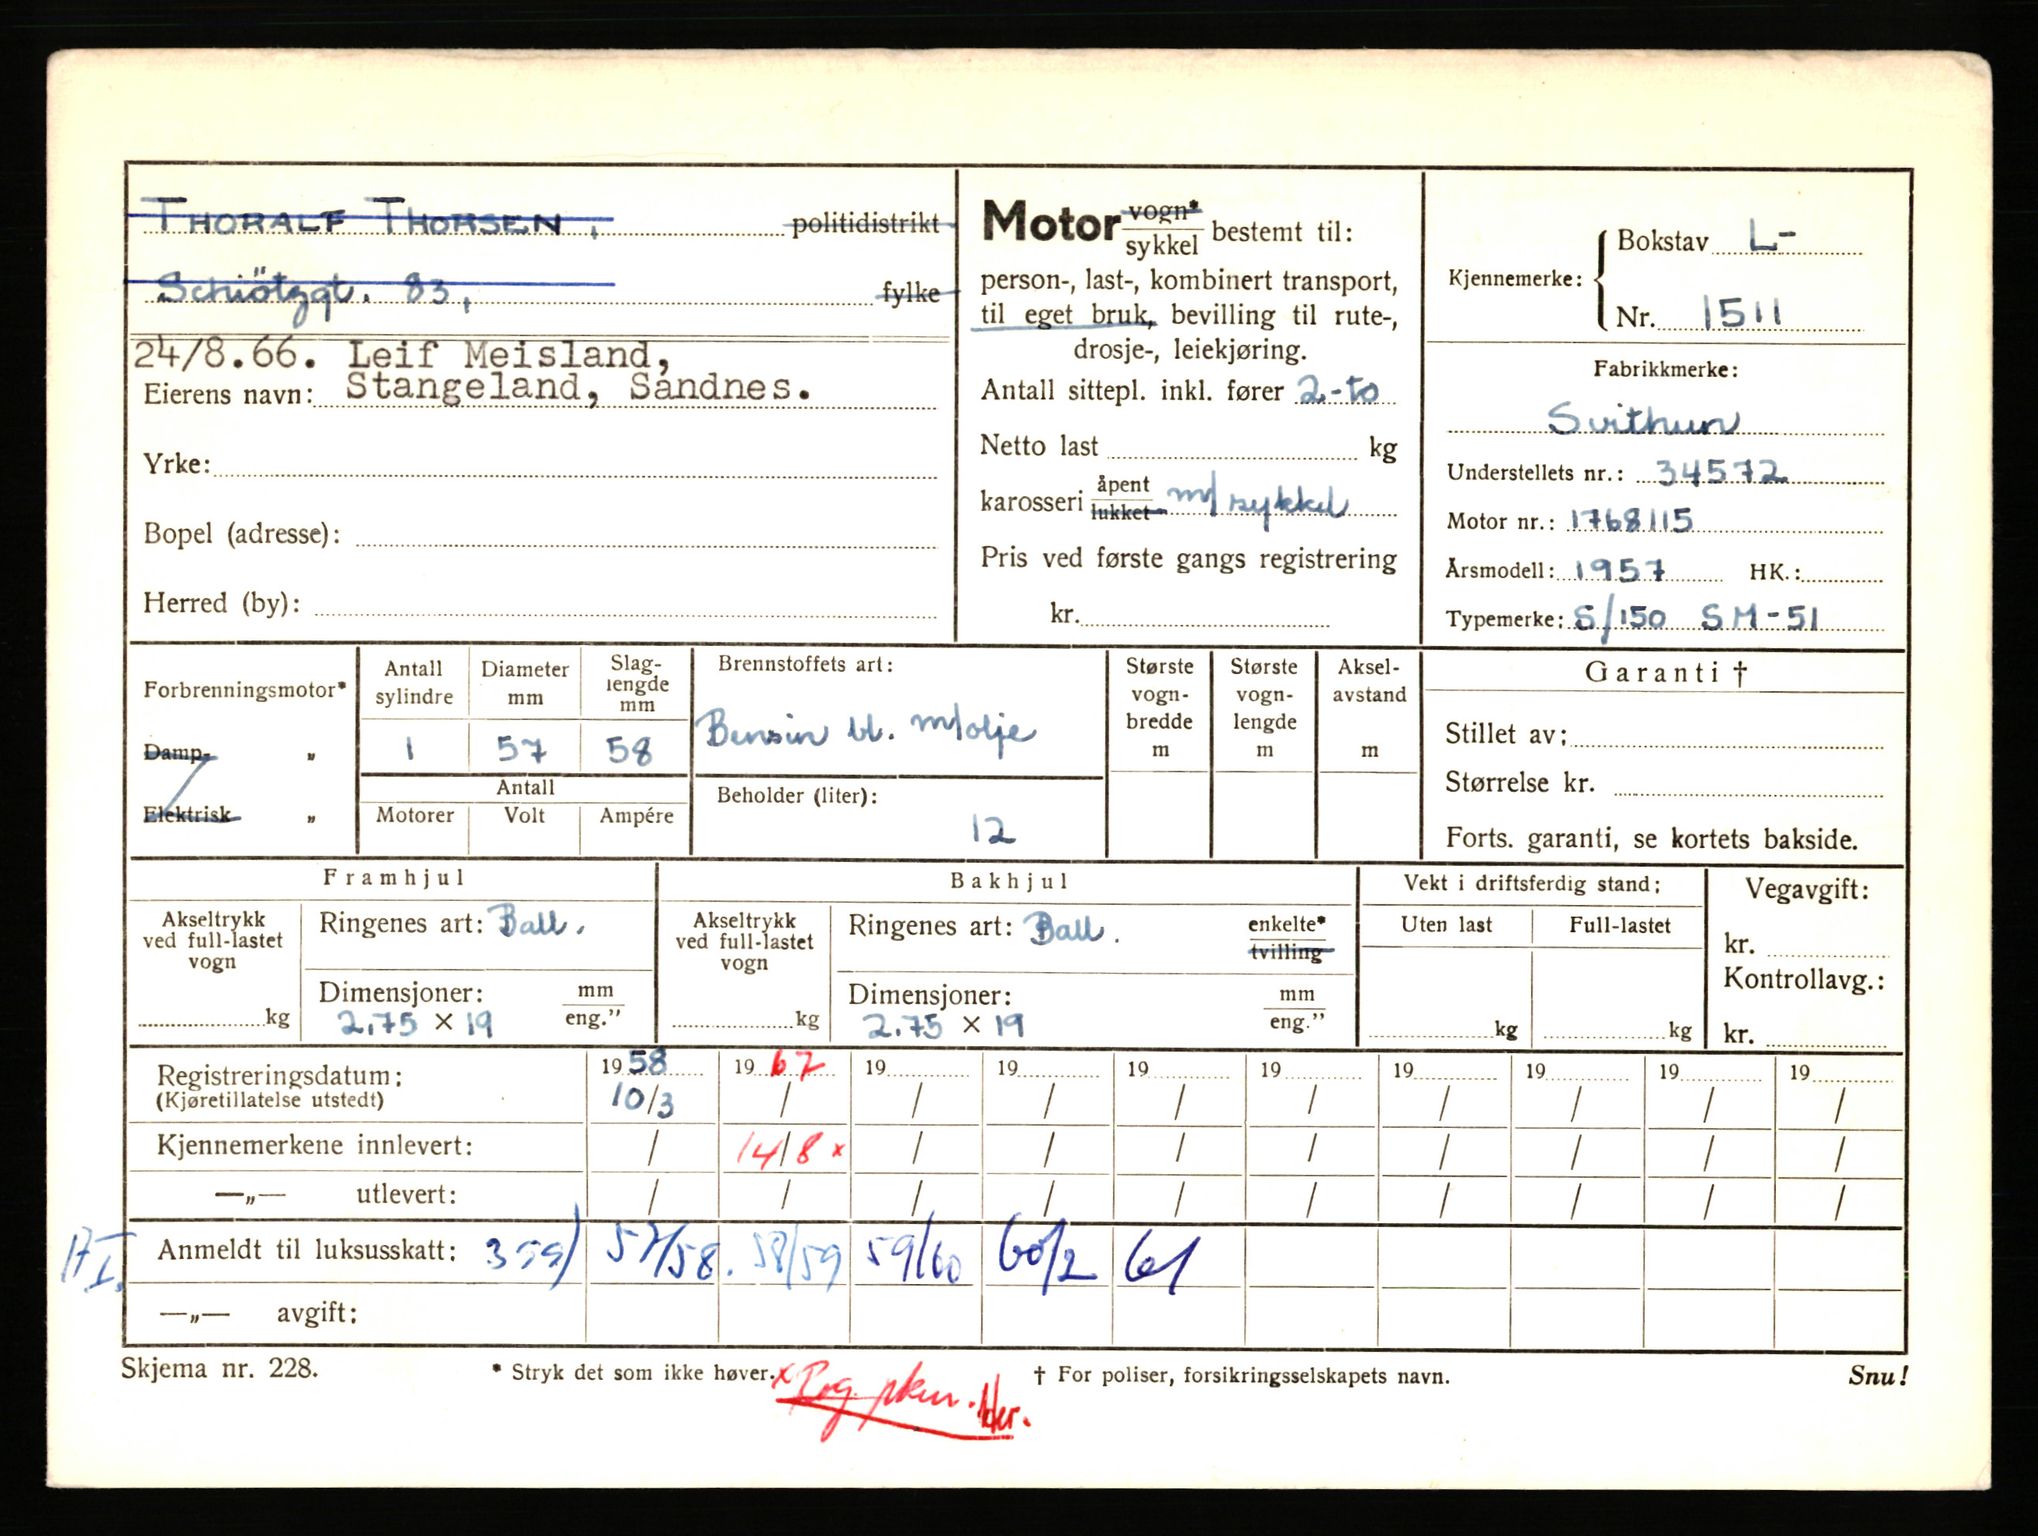 THORALF THORSEN, politidistrikt
Schiötzgt. 83, fylke
24/8.66. Leif Meisland,
Eierens navn: Stangeland, Sandnes.
Yrke:
Bopel (adresse):
Herred (by):
Motor vogn* / sykkel bestemt til:
person-, last-, kombinert transport,
til eget bruk, bevilling til rute-,
drosje-, leiekjøring.
Antall sittepl. inkl. fører 2-to
Netto last kg
karosseri åpent / lukket m/sykkel
Pris ved første gangs registrering
kr.
Kjennemerke: Bokstav L-
Nr. 1511
Fabrikkmerke:
Svithun
Understellets nr.: 34572
Motor nr.: 1768115
Årsmodell: 1957 HK.:
Typemerke: S/150 SM-51
Forbrenningsmotor*
Damp- „
Elektrisk „
Antall sylindre
Diameter mm
Slag-lengde mm
1 57 58
Antall
Motorer Volt Ampére
Brennstoffets art:
Bensin bl. m/olje
Beholder (liter):
12
Største vogn-bredde m
Største vogn-lengde m
Aksel-avstand m
Garanti †
Stillet av:
Størrelse kr.
Forts. garanti, se kortets bakside.
Framhjul
Akseltrykk ved full-lastet vogn
kg
Ringenes art: Ball.
Dimensjoner: mm / eng."
2.75 × 19
Bakhjul
Akseltrykk ved full-lastet vogn
kg
Ringenes art: Ball. enkelte* / tvilling
Dimensjoner: mm / eng."
2.75 × 19
Vekt i driftsferdig stand:
Uten last Full-lastet
kg kg
Vegavgift:
kr.
Kontrollavg.:
kr.
Registreringsdatum: 1958 1967 19 19 19 19 19 19 19 19
(Kjøretillatelse utstedt) 10/3 / / / / / / / / /
Kjennemerkene innlevert: / 14/8 x / / / / / / / /
—„— utlevert: / / / / / / / / / /
Anmeldt til luksusskatt: 57/58. 58/59 59/60 60/2 61
—„— avgift:
Skjema nr. 228. * Stryk det som ikke høver. † For poliser, forsikringsselskapets navn. Snu!